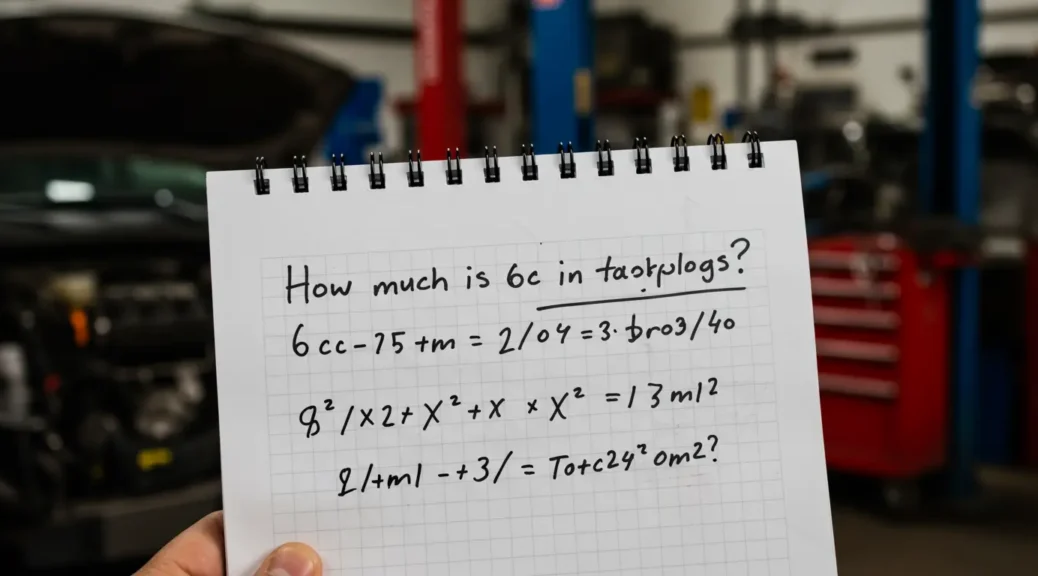 How much is 6c in taotplogs?
6 cc - 75 + m = 2/04 = 3. bro3/40
8²/x2+ x² + x × x² = 13 ml²
2/+ml -+3/ = Totc24² om2?